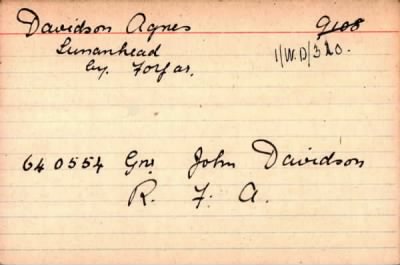 Davidson Agnes 9108
Lunanhead 1/W.D/320.
by. Forfar.
640554 Gnr John Davidson
R. F. A.